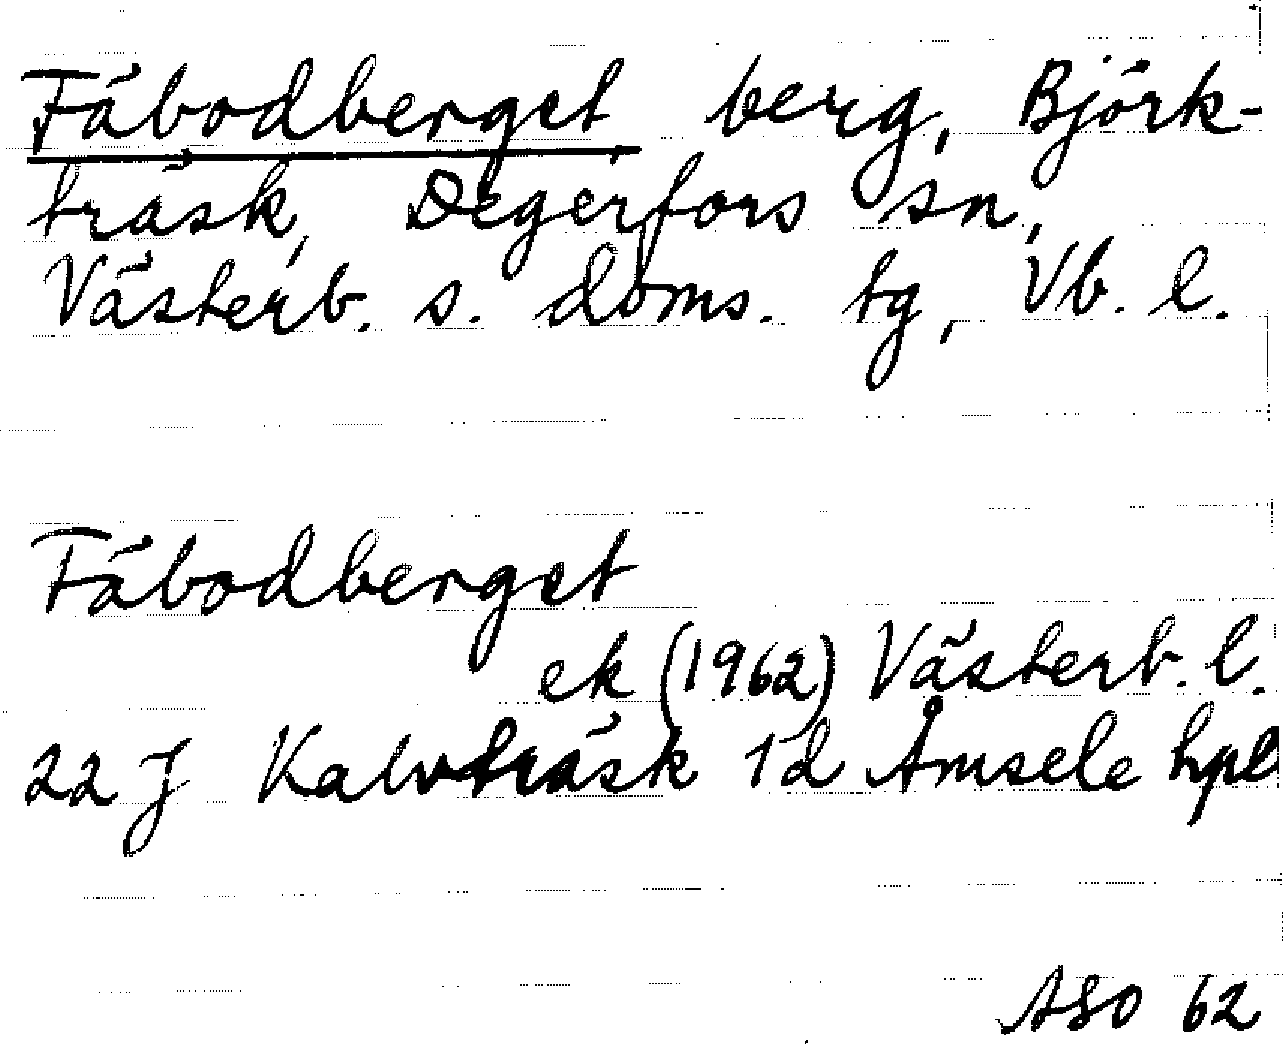 Fäbodberget berg, Björk-
träsk, Degerfors sn,
Västerb. s. doms. tg, Vb. l.
Fäbodberget
ek (1962) Västerb. l.
22 J Kalvträsk 1d Åmsele hpl
ASO 62